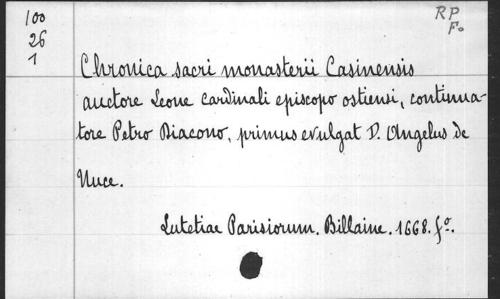 100
26
1
RP
Fo
Chronica sacri monasterii Casinensis
auctore Leone cardinali episcopo ostiensi, continua-
tore Petro Diacono, primus evulgat D. Angelus de
Nuce.
Lutetiae Parisiorum. Billaine. 1668. fo.